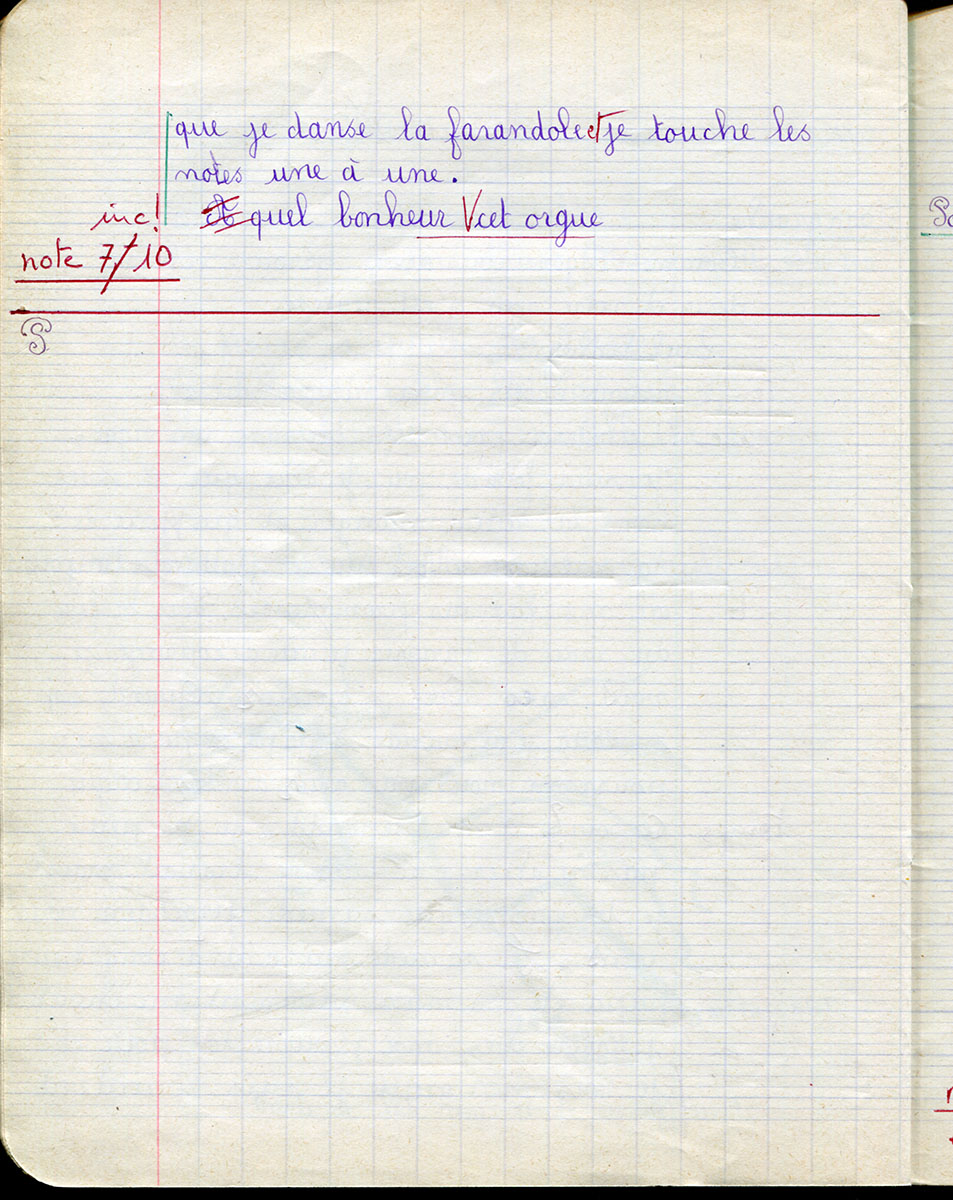 que je danse la farandole et je touche les
notes une à une.
inc! quel bonheur V cet orgue
note 7/10